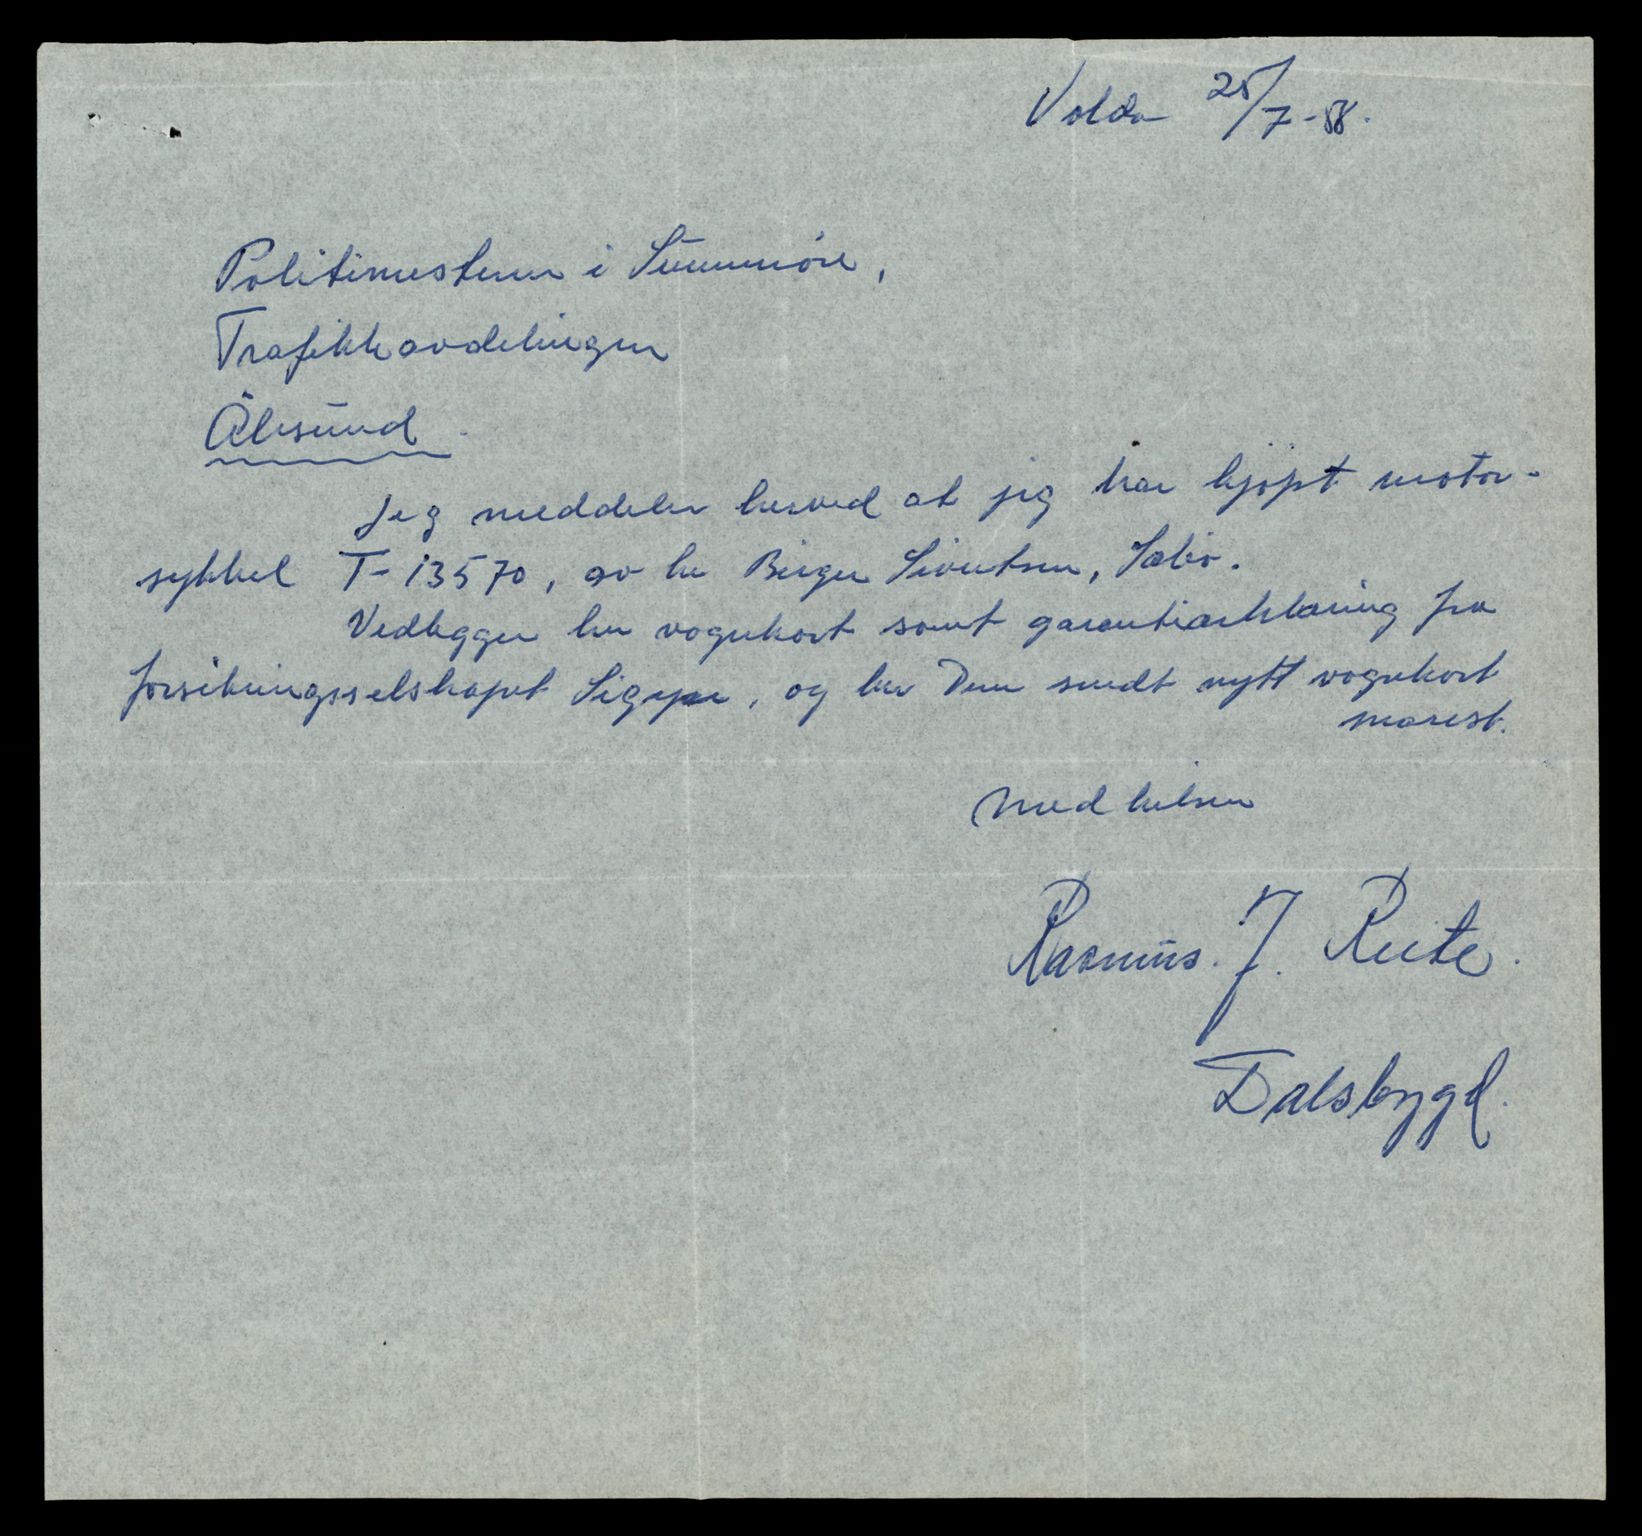 Volda 25/7-58.
Politimesteren i Sunnmöre,
Trafikkavdelingen
Ålesund.
Jeg meddeler herved at jeg har kjöpt motor-
sykkel T-13570, av hr Birger Sivertsen, Sæbö.
Vedlegger her vognkort samt garantierklæring fra
forsikringsselskapet Sigyn, og ber Dem sendt nytt vognkort
snarest.
Med hilsen
Rasmus. J. Reite.
Dalsbygd.